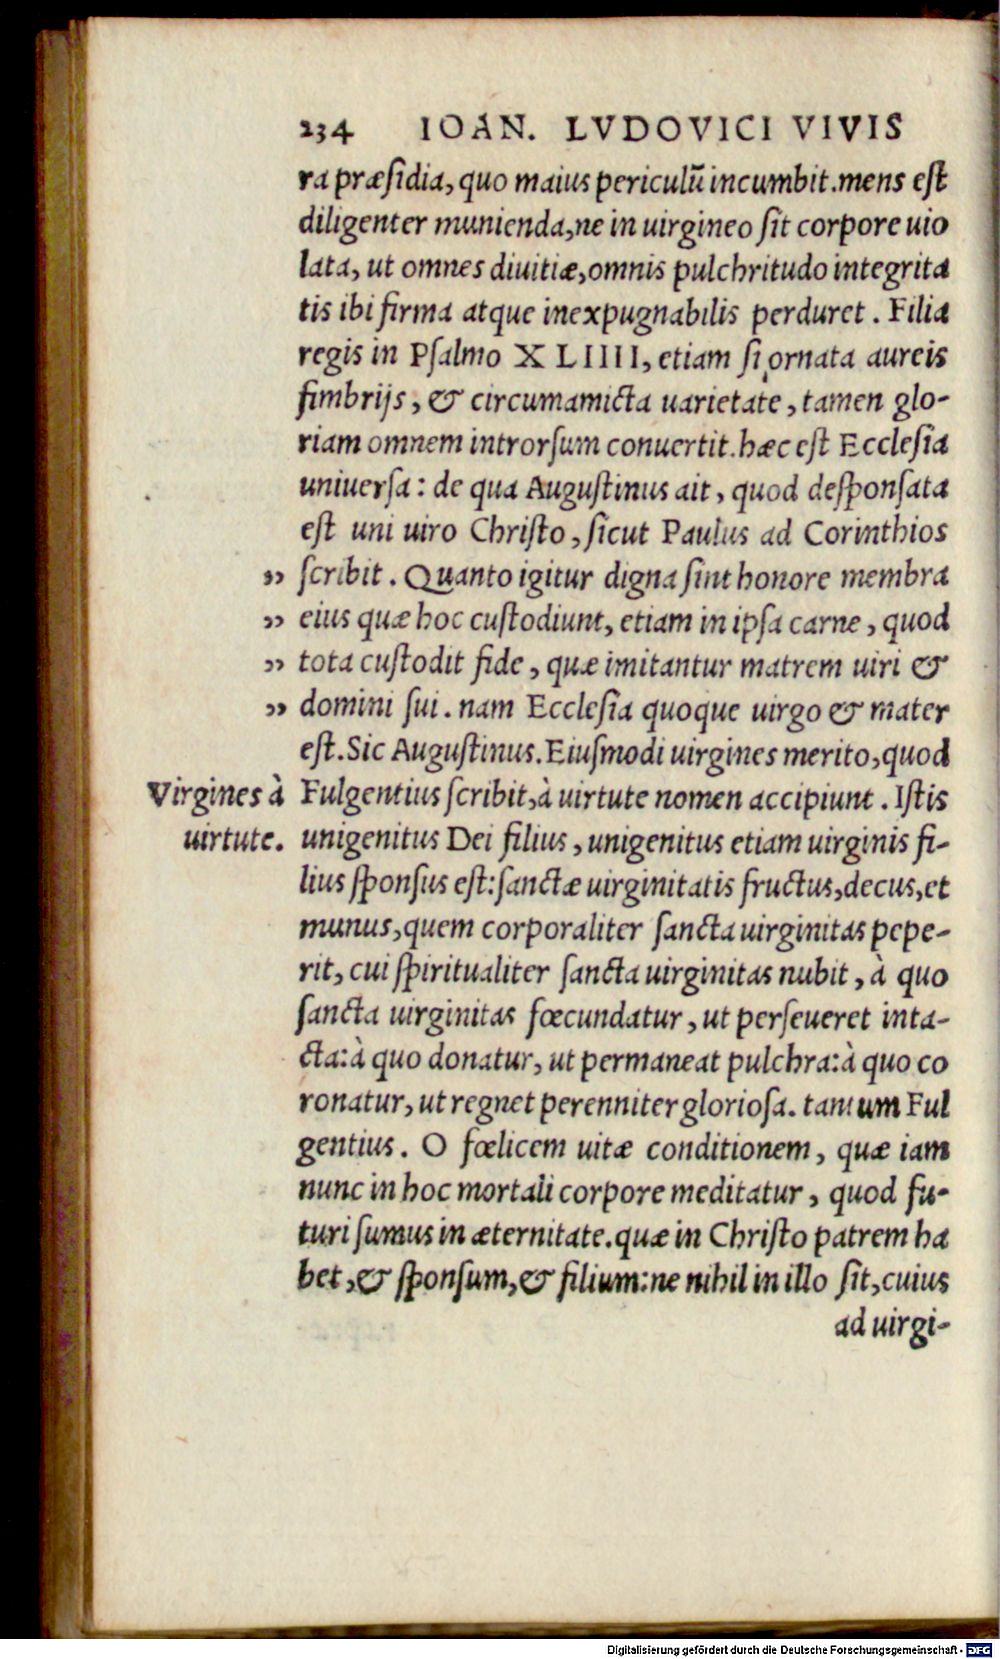 234 IOAN. LVDOVICI VIVIS
ra præsidia, quo maius periculū incumbit. mens est
diligenter munienda, ne in uirgineo sit corpore uio
lata, ut omnes diuitiæ, omnis pulchritudo integrita
tis ibi firma atque inexpugnabilis perduret. Filia
regis in Psalmo XLIIII, etiam si ornata aureis
fimbrijs, & circumamicta uarietate, tamen glo-
riam omnem introrsum conuertit. hæc est Ecclesia
uniuersa: de qua Augustinus ait, quod desponsata
est uni uiro Christo, sicut Paulus ad Corinthios
„ scribit. Quanto igitur digna sint honore membra
„ eius quæ hoc custodiunt, etiam in ipsa carne, quod
„ tota custodit fide, quæ imitantur matrem uiri &
„ domini sui. nam Ecclesia quoque uirgo & mater
est. Sic Augustinus. Eiusmodi uirgines merito, quod
Virgines à Fulgentius scribit, à uirtute nomen accipiunt. Istis
uirtute. unigenitus Dei filius, unigenitus etiam uirginis fi-
lius sponsus est: sanctæ uirginitatis fructus, decus, et
munus, quem corporaliter sancta uirginitas pepe-
rit, cui spiritualiter sancta uirginitas nubit, à quo
sancta uirginitas fœcundatur, ut perseueret inta-
cta: à quo donatur, ut permaneat pulchra: à quo co
ronatur, ut regnet perenniter gloriosa. tantum Ful
gentius. O fœlicem uitæ conditionem, quæ iam
nunc in hoc mortali corpore meditatur, quod fu-
turi sumus in æternitate. quæ in Christo patrem ha
bet, & sponsum, & filium: ne nihil in illo sit, cuius
ad uirgi-
Digitalisierung gefördert durch die Deutsche Forschungsgemeinschaft - DFG